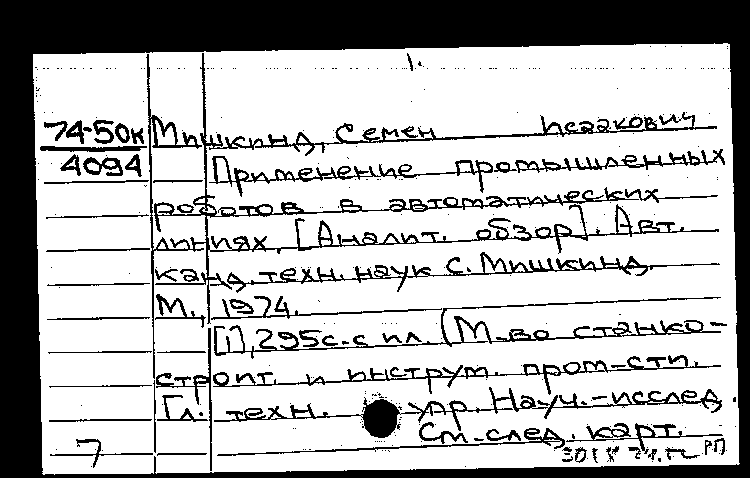 1.
74-50к Мишкинд, Семен Исаакович
4094 Применение промышленных
роботов в автоматических
линиях. [Аналит. обзор]. Авт.
канд. техн. наук С. Мишкинд.
М., 1974.
[1], 295с. с ил. (М-во станко-
строит. и инструм. пром-сти.
Гл. техн. упр. Науч.-исслед.
См. след. карт.
7
РП